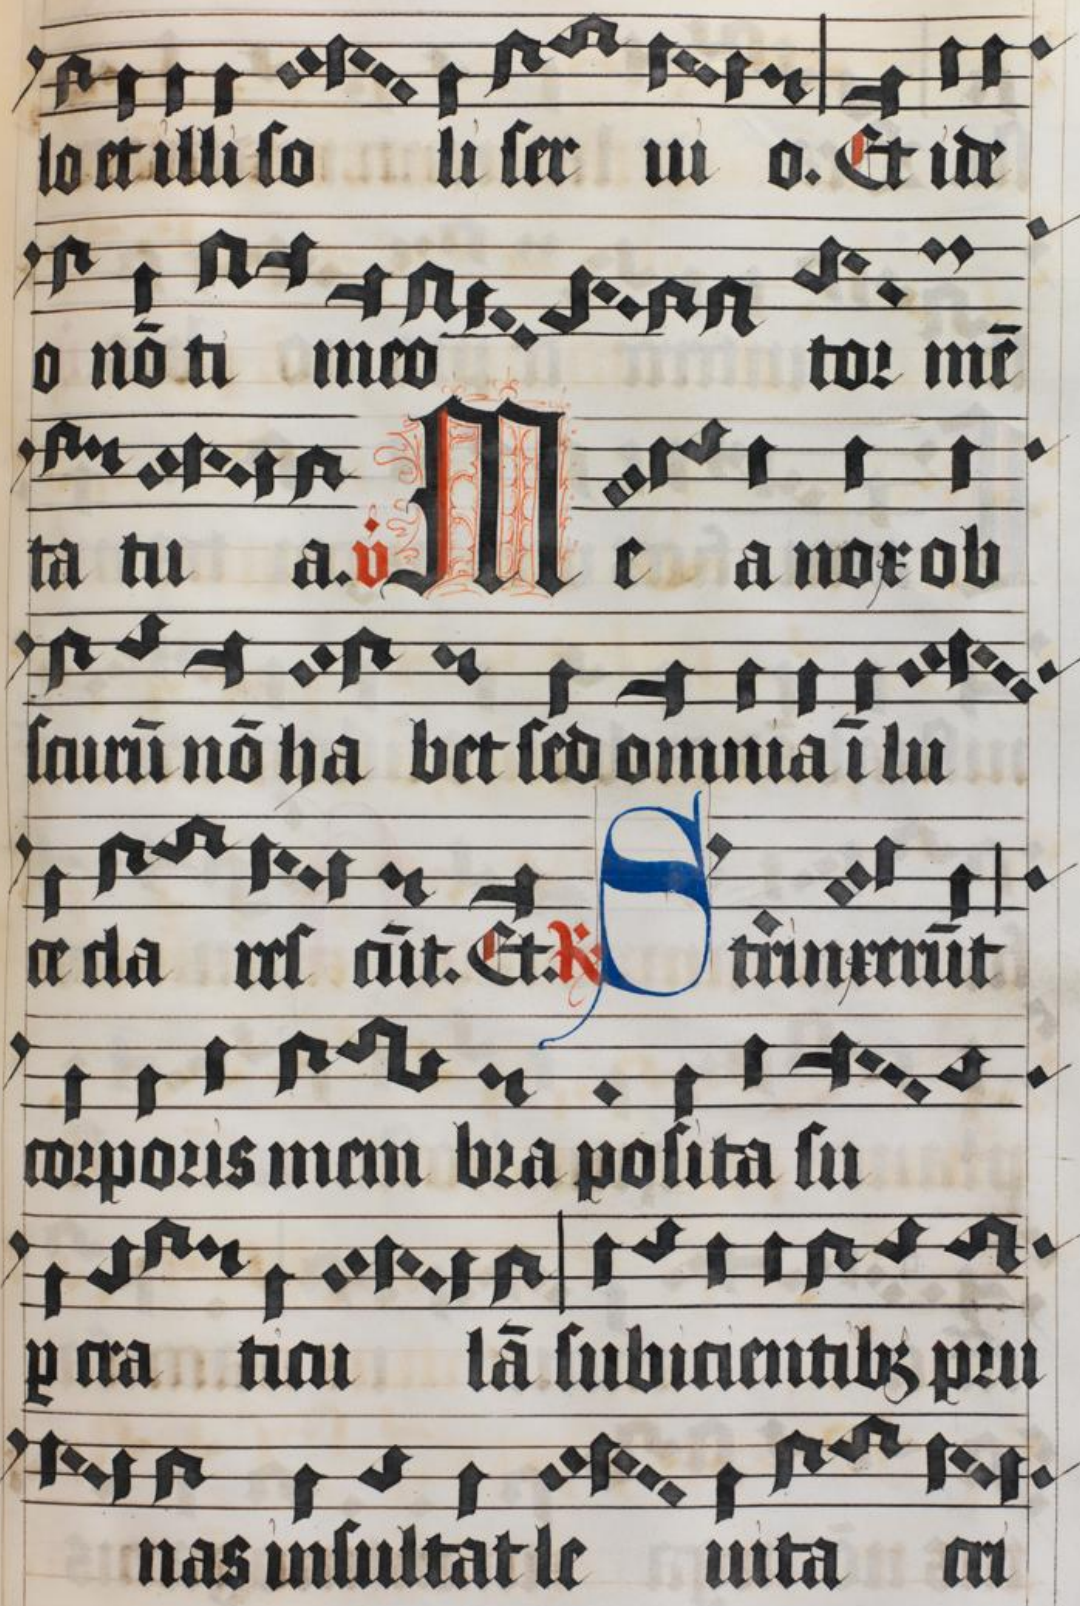 lo et illi so li ser ui o. Et ide
o nō ti meo tor mē
ta tu a. v̇ M e a nox ob
scurū nō ha bet sed omnia ī lu
ce cla res cūt. Et. R S trīnxerūt
corporis mem bra posita su
ꝑ cra ticu lā subicientibꝫ pru
nas insultat le uita cri